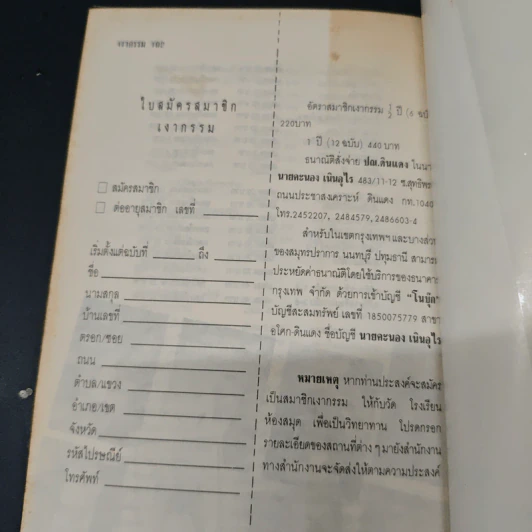 ใบสมัครสมาชิก
เงากรรม
□ สมัครสมาชิก
□ ต่ออายุสมาชิก เลขที่
เริ่มตั้งแต่ฉบับที่ ถึง
ชื่อ
นามสกุล
บ้านเลขที่
ตรอก/ซอย
ถนน
ตำบล/แขวง
อำเภอ/เขต
จังหวัด
รหัสไปรษณีย์
โทรศัพท์
อัตราสมาชิกเงากรรม ½ ปี (6 ฉบั
220บาท
1 ปี (12 ฉบับ) 440 บาท
ธนาณัติสั่งจ่าย ปณ.ดินแดง ในนา
นายคะนอง เนินอุไร 483/11-12 ซ.สุทธิพร
ถนนประชาสงเคราะห์ ดินแดง กท.1040
โทร.2452207, 2484579, 2486603-4
สำหรับในเขตกรุงเทพฯ และบางส่ว
ของสมุทรปราการ นนทบุรี ปทุมธานี สามารถ
ประหยัดค่าธนาณัติโดยใช้บริการของธนาคาร
กรุงเทพ จำกัด ด้วยการเข้าบัญชี "โนบุ๊ค"
บัญชีสะสมทรัพย์ เลขที่ 1850075779 สาขา
อโศก-ดินแดง ชื่อบัญชี นายคะนอง เนินอุไร
หมายเหตุ หากท่านประสงค์จะสมัคร
เป็นสมาชิกเงากรรม ให้กับวัด โรงเรียน
ห้องสมุด เพื่อเป็นวิทยาทาน โปรดกรอก
รายละเอียดของสถานที่ต่าง ๆ มายังสำนักงาน
ทางสำนักงานจะจัดส่งให้ตามความประสงค์